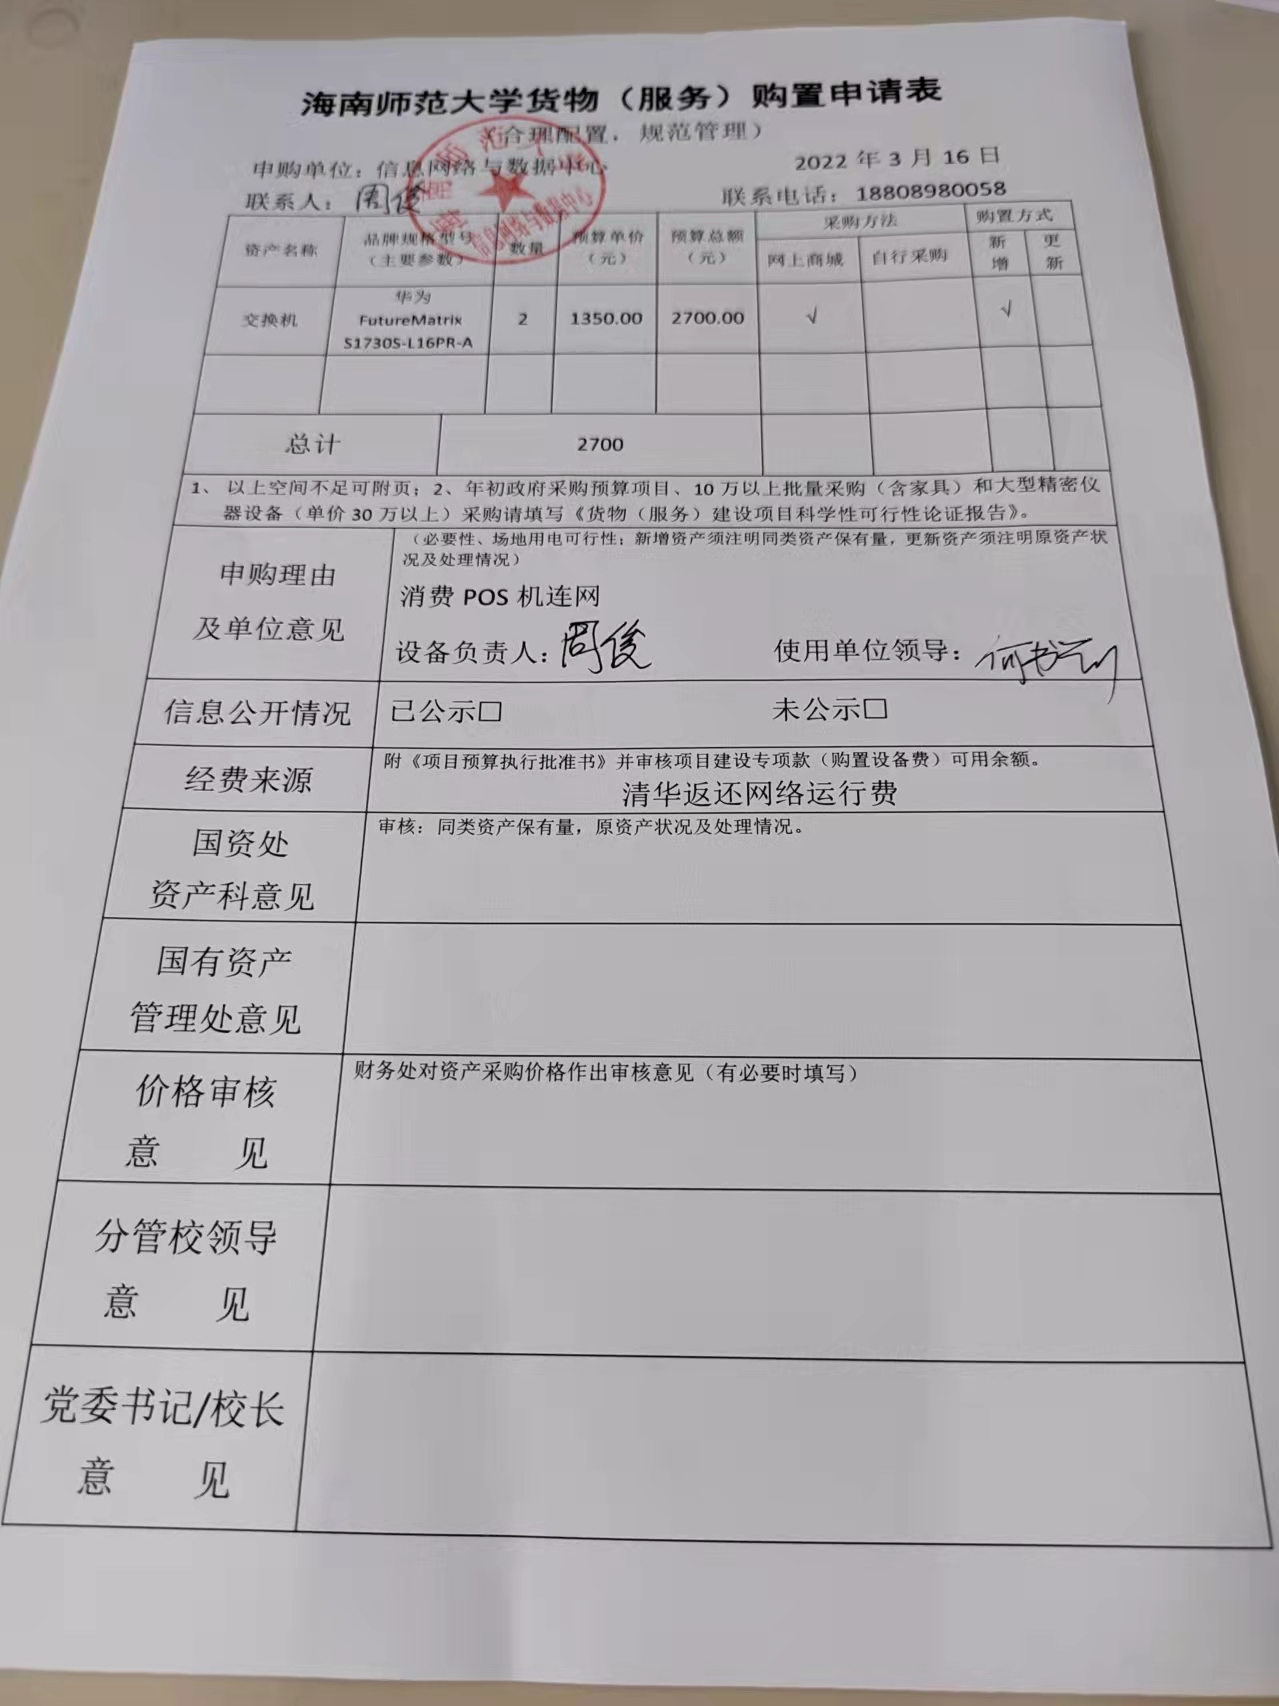 海南师范大学货物（服务）购置申请表
（合理配置，规范管理）
申购单位：信息网络与数据中心 2022 年 3 月 16 日
联系人：周俊 联系电话：18808980058
资产名称 品牌规格型号（主要参数） 数量 预算单价（元） 预算总额（元） 采购方法 购置方式
网上商城 自行采购 新增 更新
交换机 华为 FutureMatrix S1730S-L16PR-A 2 1350.00 2700.00 √ √
总计 2700
1、 以上空间不足可附页；2、年初政府采购预算项目、10 万以上批量采购（含家具）和大型精密仪
器设备（单价 30 万以上）采购请填写《货物（服务）建设项目科学性可行性论证报告》。
申购理由
及单位意见
（必要性、场地用电可行性；新增资产须注明同类资产保有量，更新资产须注明原资产状
况及处理情况）
消费 POS 机连网
设备负责人：周俊 使用单位领导：
信息公开情况 已公示□ 未公示□
经费来源
附《项目预算执行批准书》并审核项目建设专项款（购置设备费）可用余额。
清华返还网络运行费
国资处
资产科意见
审核：同类资产保有量，原资产状况及处理情况。
国有资产
管理处意见
价格审核
意 见
财务处对资产采购价格作出审核意见（有必要时填写）
分管校领导
意 见
党委书记/校长
意 见
信息网络与数据中心